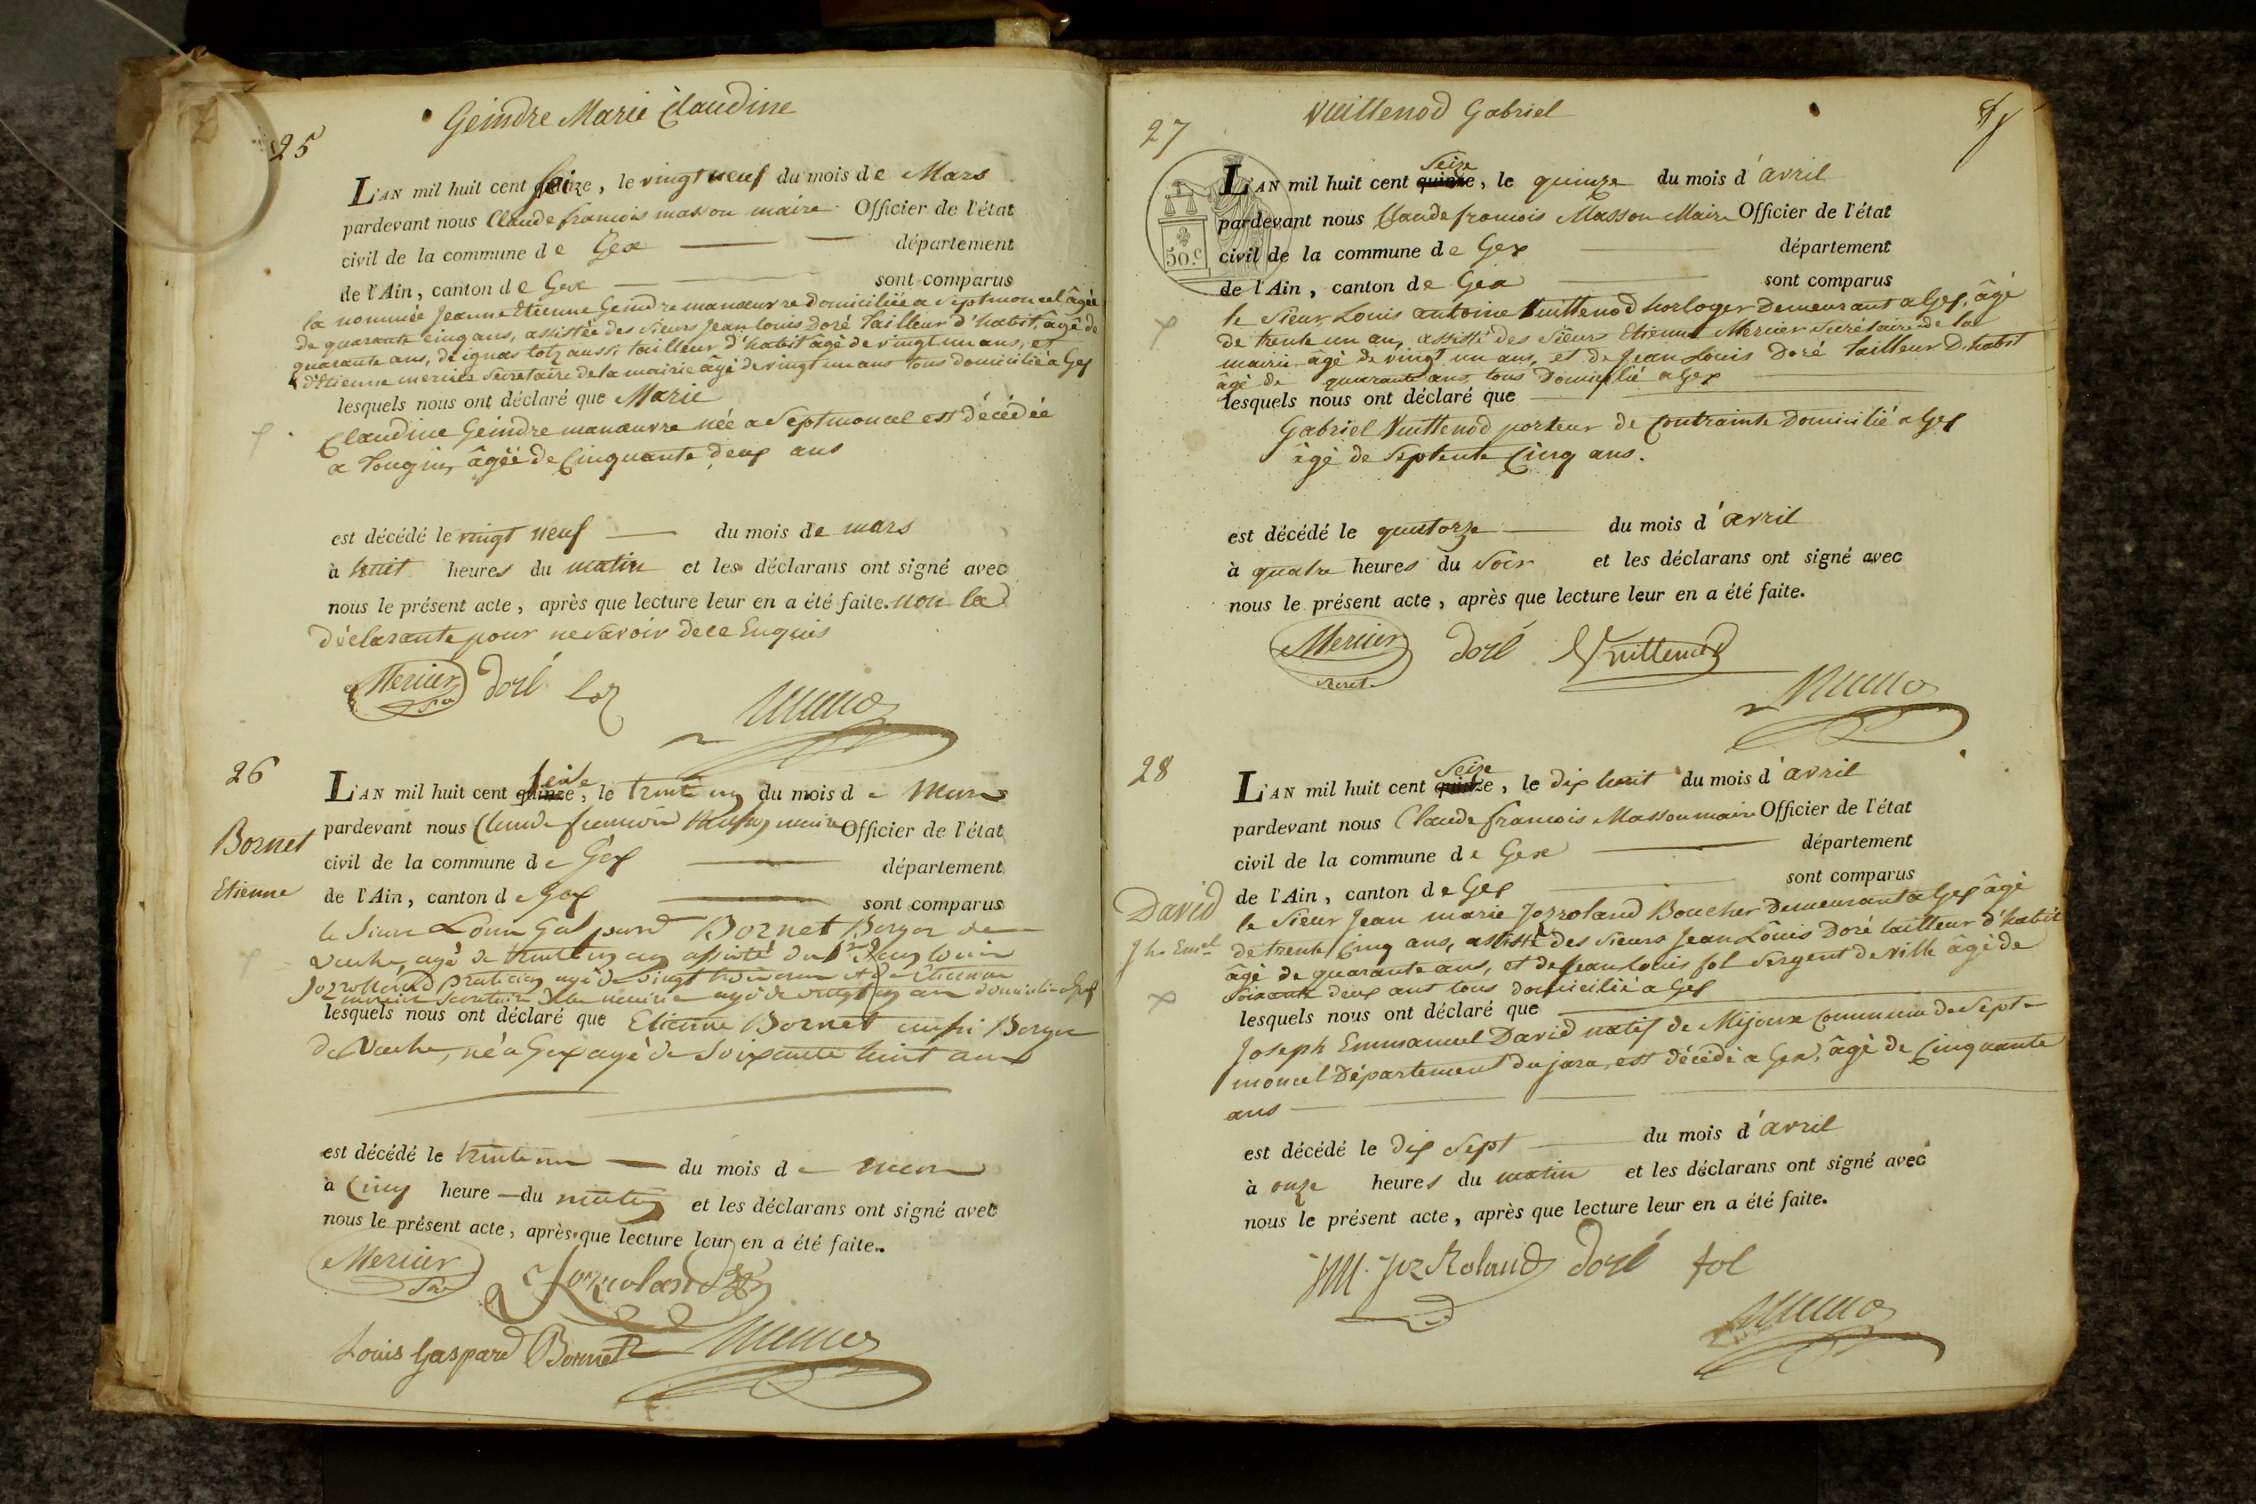 Geindre Marie Claudine
25
L'AN mil huit cent seize, le vingt neuf du mois de Mars
pardevant nous Claude francois masson maire Officier de l'état
civil de la commune de Gex département
de l'Ain, canton de Gex sont comparus
la nommée Jeanne Etienne Geindre manœuvre domiciliée a Septmoncel âgée
de quarante cinq ans, assistée des sieurs Jean louis Doré Tailleur d'habit, âgé de
quarante ans, de ignas lotz aussi tailleur d'habit âgé de vingt un ans, et
d'Etienne mercier Secretaire de la mairie âgé de vingt un ans tous domicilié a Gex
lesquels nous ont déclaré que Marie
Claudine Geindre manœuvre née a Septmoncel est décédée
a Tougin, âgée de Cinquante deux ans
est décédé le vingt neuf du mois de mars
à huit heures du matin et les déclarans ont signé avec
nous le présent acte, après que lecture leur en a été faite. non la
déclarante pour ne savoir de ce Enquis
Mercier doré Loz
26
Bornet
Etienne
L'AN mil huit cent quinze seize, le trente un du mois de Mars
pardevant nous Claude francois Masson maire Officier de l'état
civil de la commune de Gex département
de l'Ain, canton de Gex sont comparus
le Sieur Louis Gaspard Bornet Berger de
vache, agé de trente un an assisté du Sr Jean louis
Jozrolland praticien agé de vingt trois ans et d'Etienne
mercier Secretaire de la mairie agé de vingt un an domicilié a Gex
lesquels nous ont déclaré que Etienne Bornet aussi Berger
de Vache, né a Gex agé de Soixante huit ans
est décédé le trente un du mois de mars
à Cinq heure du matin et les déclarans ont signé avec
nous le présent acte, après que lecture leur en a été faite.
Mercier Jozroland
Louis Gaspard Bornet
Vuittenod Gabriel
27
50.c
L'AN mil huit cent quinze Seize, le quinze du mois d'avril
pardevant nous Claude francois Masson Maire Officier de l'état
civil de la commune de Gex département
de l'Ain, canton de Gex sont comparus
le Sieur Louis antoine Vuittenod horloger Demeurant a Gex, âgé
de trente un an, assisté des Sieurs Etienne Mercier Secrétaire de la
mairie âgé de vingt un ans, et de Jean Louis Doré Tailleur D'habit
âgé de quarante ans, tous Domicilié a Gex
lesquels nous ont déclaré que
Gabriel Vuittenod porteur de Contrainte Domicilié a Gex
âgé de Septente Cinq ans.
est décédé le quatorze du mois d'avril
à quatre heures du Soir et les déclarans ont signé avec
nous le présent acte, après que lecture leur en a été faite.
Mercier doré Vuittenod
Secret.
28
David
Jh. Emel
L'AN mil huit cent quinze Seize, le dix huit du mois d'avril
pardevant nous Claude francois Masson maire Officier de l'état
civil de la commune de Gex département
de l'Ain, canton de Gex sont comparus
le Sieur Jean marie Jozroland Boucher Demeurant a Gex âgé
de trente Cinq ans, assisté des Sieurs Jean Louis Doré tailleur d'habit
âgé de quarante ans, et de Jean louis fol Sergent de ville âgé de
Soixante deux ans tous domicilié a Gex
lesquels nous ont déclaré que
Joseph Emmanuel David natif de Mijoux Commune de Sept-
moncel Département du jura, est décédé a Gex, âgé de Cinquante
ans
est décédé le dix Sept du mois d'avril
à onze heures du matin et les déclarans ont signé avec
nous le présent acte, après que lecture leur en a été faite.
JM. Joz Roland doré fol